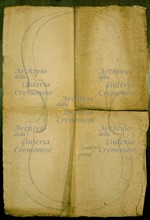 Archivio
della
Liuteria
Cremonese
Archivio
della
Liuteria
Cremonese
Archivio
della
Liuteria
Cremonese
Archivio
della
Liuteria
Cremonese